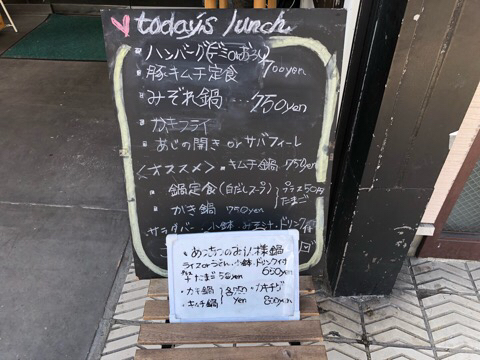 today's lunch
ハンバーグ(デミorおろし)
豚キムチ定食 700yen
みぞれ鍋…750yen
かきフライ
あじの開き orサバフィーレ
<オススメ> キムチ鍋 750yen
鍋定食(白だしスープ) プラス50円 たまご
かき鍋 750yen
サラダバー・小鉢・みそ汁・ドリンク付
ライスorうどん・小鉢・ドリンク付
650yen
たまご 50yen
・カキ鍋
・キムチ鍋
yen
800yen